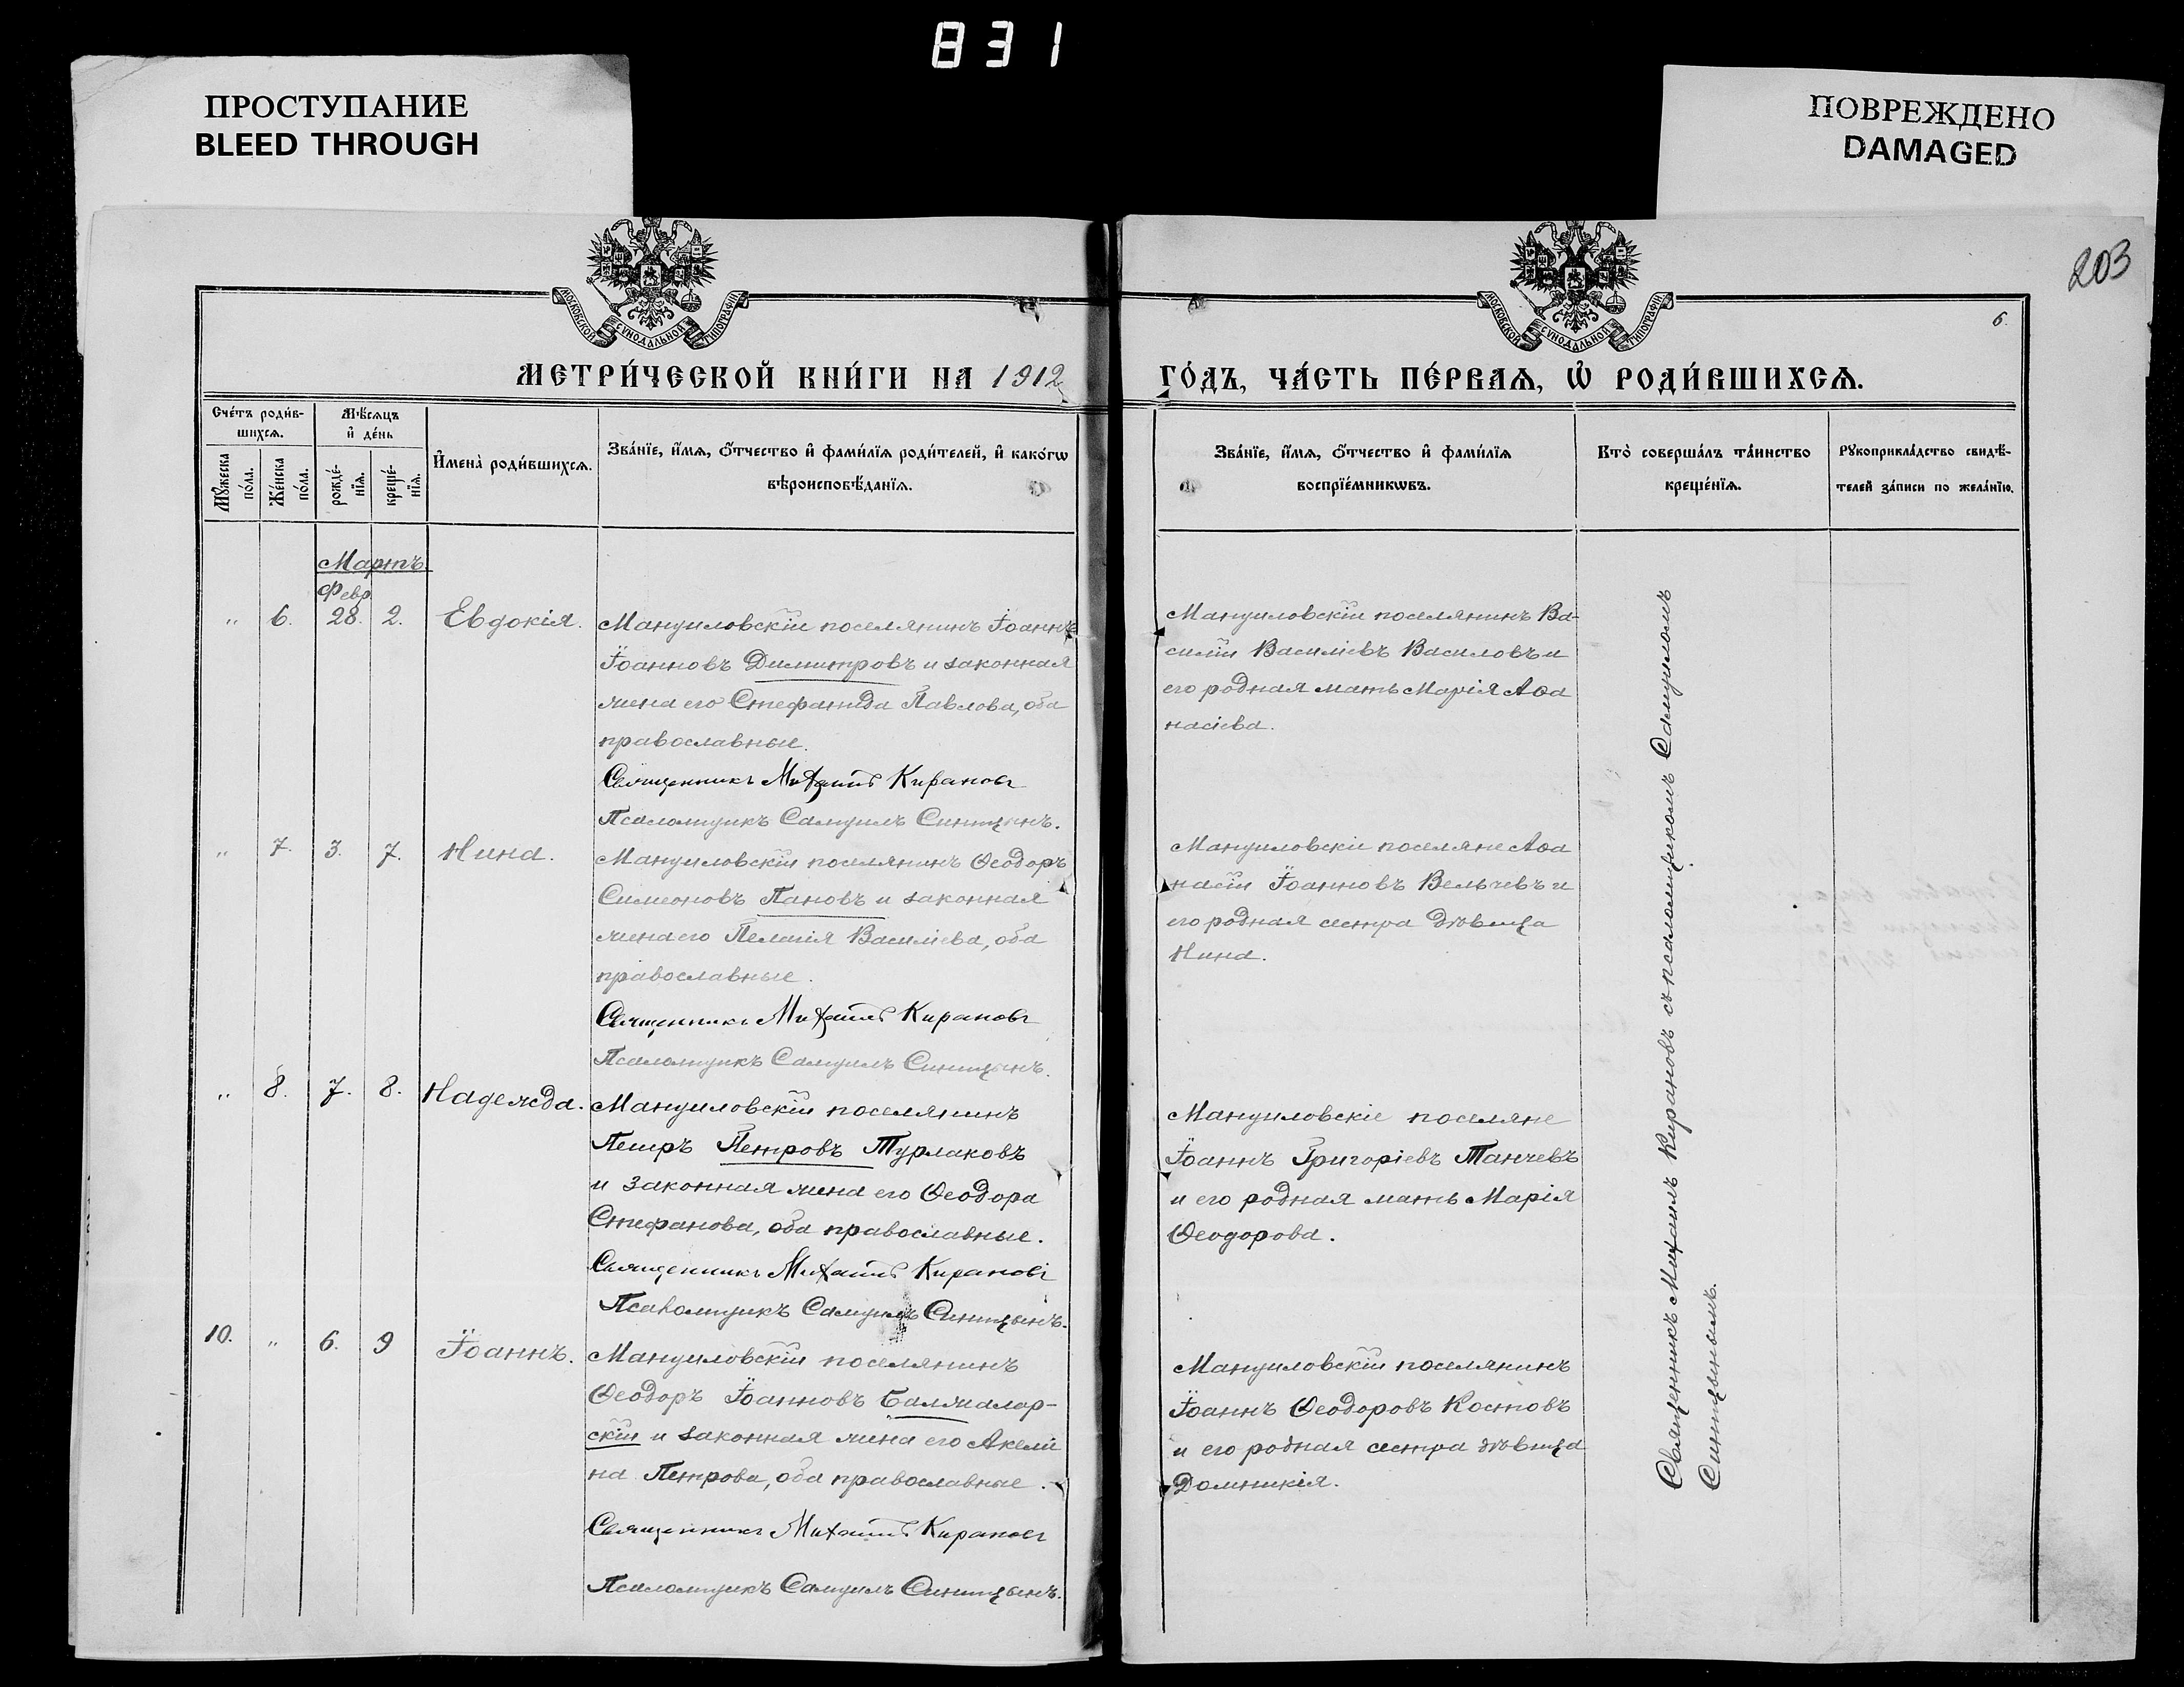 831
ПРОСТУПАНИЕ
BLEED THROUGH
ПОВРЕЖДЕНО
DAMAGED
203
6.
МОСКОВСКОЙ СѴНОДАЛЬНОЙ ТИПОГРАФІИ
МОСКОВСКОЙ СѴНОДАЛЬНОЙ ТИПОГРАФІИ
МЕТРИ́ЧЕСКОЙ КНИ́ГИ НА 1912
ГО́ДЪ, ЧА́СТЬ ПЕ́РВАѦ, Ѡ҆ РОДИ́ВШИХСѦ.
Сче́тъ роди́в-
шихсѧ.
Мꙋ́жеска
по́ла.
Же́нска
по́ла.
Мѣ́сѧцъ
и҆ де́нь
рожде́-
нїѧ.
креще́-
нїѧ.
И҆мена̀ роди́вшихсѧ.
Зва́нїе, и҆́мѧ, ѻ҆́тчество и҆ фами́лїѧ роди́телей, и҆ како́гѡ
вѣроисповѣ́данїѧ.
Зва́нїе, и҆́мѧ, ѻ҆́тчество и҆ фами́лїѧ
воспрїе́мникѡвъ.
Кто̀ соверша́лъ та́инство
креще́нїѧ.
Рꙋкоприкла́дство свидѣ́-
телей за́писи по жела́нїю.
Мартъ.
Февр.
" 6. 28. 2. Евдокія.
Мануиловскій поселянинъ Іоаннъ
Іоанновъ Димитровъ и законная
жена его Стефанида Павлова, оба
православные.
Священникъ Михаилъ Кирановъ
Псаломщикъ Самуилъ Синицынъ.
Мануиловскій поселянинъ Ва-
силій Василіевъ Василовъ и
его родная мать Марія Аѳа
насіева.
" 7. 3. 7. Нина.
Мануиловскій поселянинъ Ѳеодоръ
Симеоновъ Пановъ и законная
жена его Пелагія Василіева, оба
православные.
Священникъ Михаилъ Кирановъ
Псаломщикъ Самуилъ Синицынъ.
Мануиловскіе поселяне Аѳа
насій Іоанновъ Вельчевъ и
его родная сестра дѣвица
Нина.
" 8. 7. 8. Надежда.
Мануиловскій поселянинъ
Петръ Петровъ Турлаковъ
и законная жена его Ѳеодора
Стефанова, оба православные.
Священникъ Михаилъ Кирановъ
Псаломщикъ Самуилъ Синицынъ.
Мануиловскіе поселяне
Іоаннъ Григоріевъ Танчевъ
и его родная мать Марія
Ѳеодорова.
10. " 6. 9 Іоаннъ.
Мануиловскій поселянинъ
Ѳеодоръ Іоанновъ Балжалар-
скій и законная жена его Акели
на Петрова, оба православные.
Священникъ Михаилъ Кирановъ
Псаломщикъ Самуилъ Синицынъ.
Мануиловскій поселянинъ
Іоаннъ Ѳеодоровъ Костовъ
и его родная сестра дѣвица
Домникія.
Священникъ Михаилъ Кирановъ съ псаломщикомъ Самуиломъ
Синицынымъ.